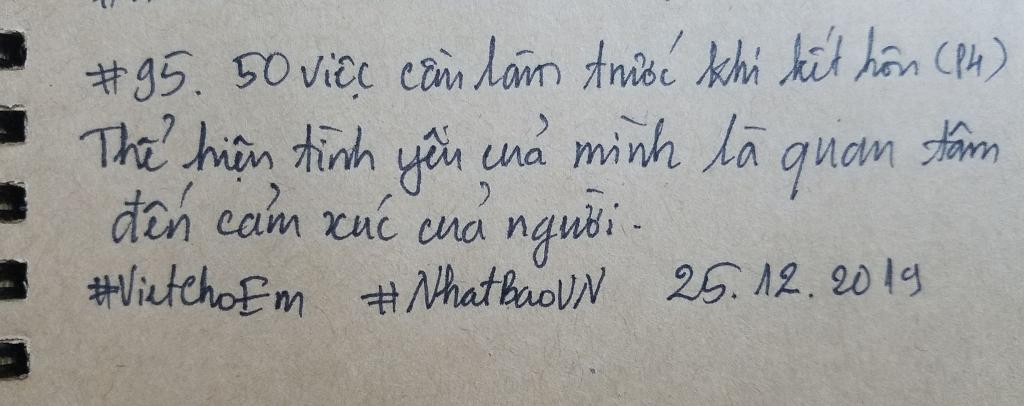 #95. 50 việc cần làm trước khi kết hôn (P4)
Thể hiện tình yêu của mình là quan tâm
đến cảm xúc của người.
#VietchoEm #NhatBaoVN 25.12.2019